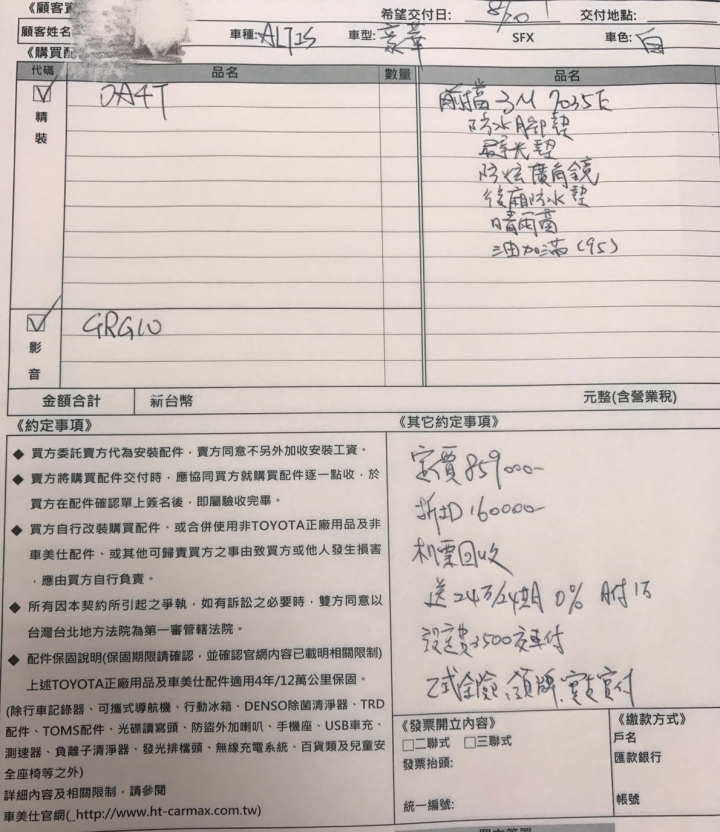 《顧客資
希望交付日: 8/20 交付地點:
顧客姓名 車種: ALTIS 車型: 豪華 SFX 車色: 白
《購買配
代碼 品名 數量 品名
精裝 DA4T
前擋 3M 7035E
防水腳墊
避光墊
防炫廣角鏡
後廂防水墊
晴雨窗
油加滿(95)
影音 GRG10
金額合計 新台幣 元整(含營業稅)
《約定事項》
◆ 買方委託賣方代為安裝配件,賣方同意不另外加收安裝工資。
◆ 賣方將購買配件交付時,應協同買方就購買配件逐一點收,於
買方在配件確認單上簽名後,即屬驗收完畢。
◆ 買方自行改裝購買配件、或合併使用非TOYOTA正廠用品及非
車美仕配件、或其他可歸責買方之事由致買方或他人發生損害
,應由買方自行負責。
◆ 所有因本契約所引起之爭執,如有訴訟之必要時,雙方同意以
台灣台北地方法院為第一審管轄法院。
◆ 配件保固說明(保固期限請確認,並確認官網內容已載明相關限制)
上述TOYOTA正廠用品及車美仕配件適用4年/12萬公里保固。
(除行車記錄器、可攜式導航機、行動冰箱、DENSO除菌清淨器、TRD
配件、TOMS配件、光碟讀寫頭、防盜外加喇叭、手機座、USB車充、
測速器、負離子清淨器、發光排檔頭、無線充電系統、百貨類及兒童安
全座椅等之外)
詳細內容及相關限制,請參閱
車美仕官網(_http://www.ht-carmax.com.tw)
《其它約定事項》
定價 859000-
折扣 160000-
机票回收
送 24万/24期 0%
設定費3500交車付
乙式全險、領牌、實支實付
《發票開立內容》
□二聯式 □三聯式
發票抬頭:
統一編號:
《繳款方式》
戶名
匯款銀行
帳號